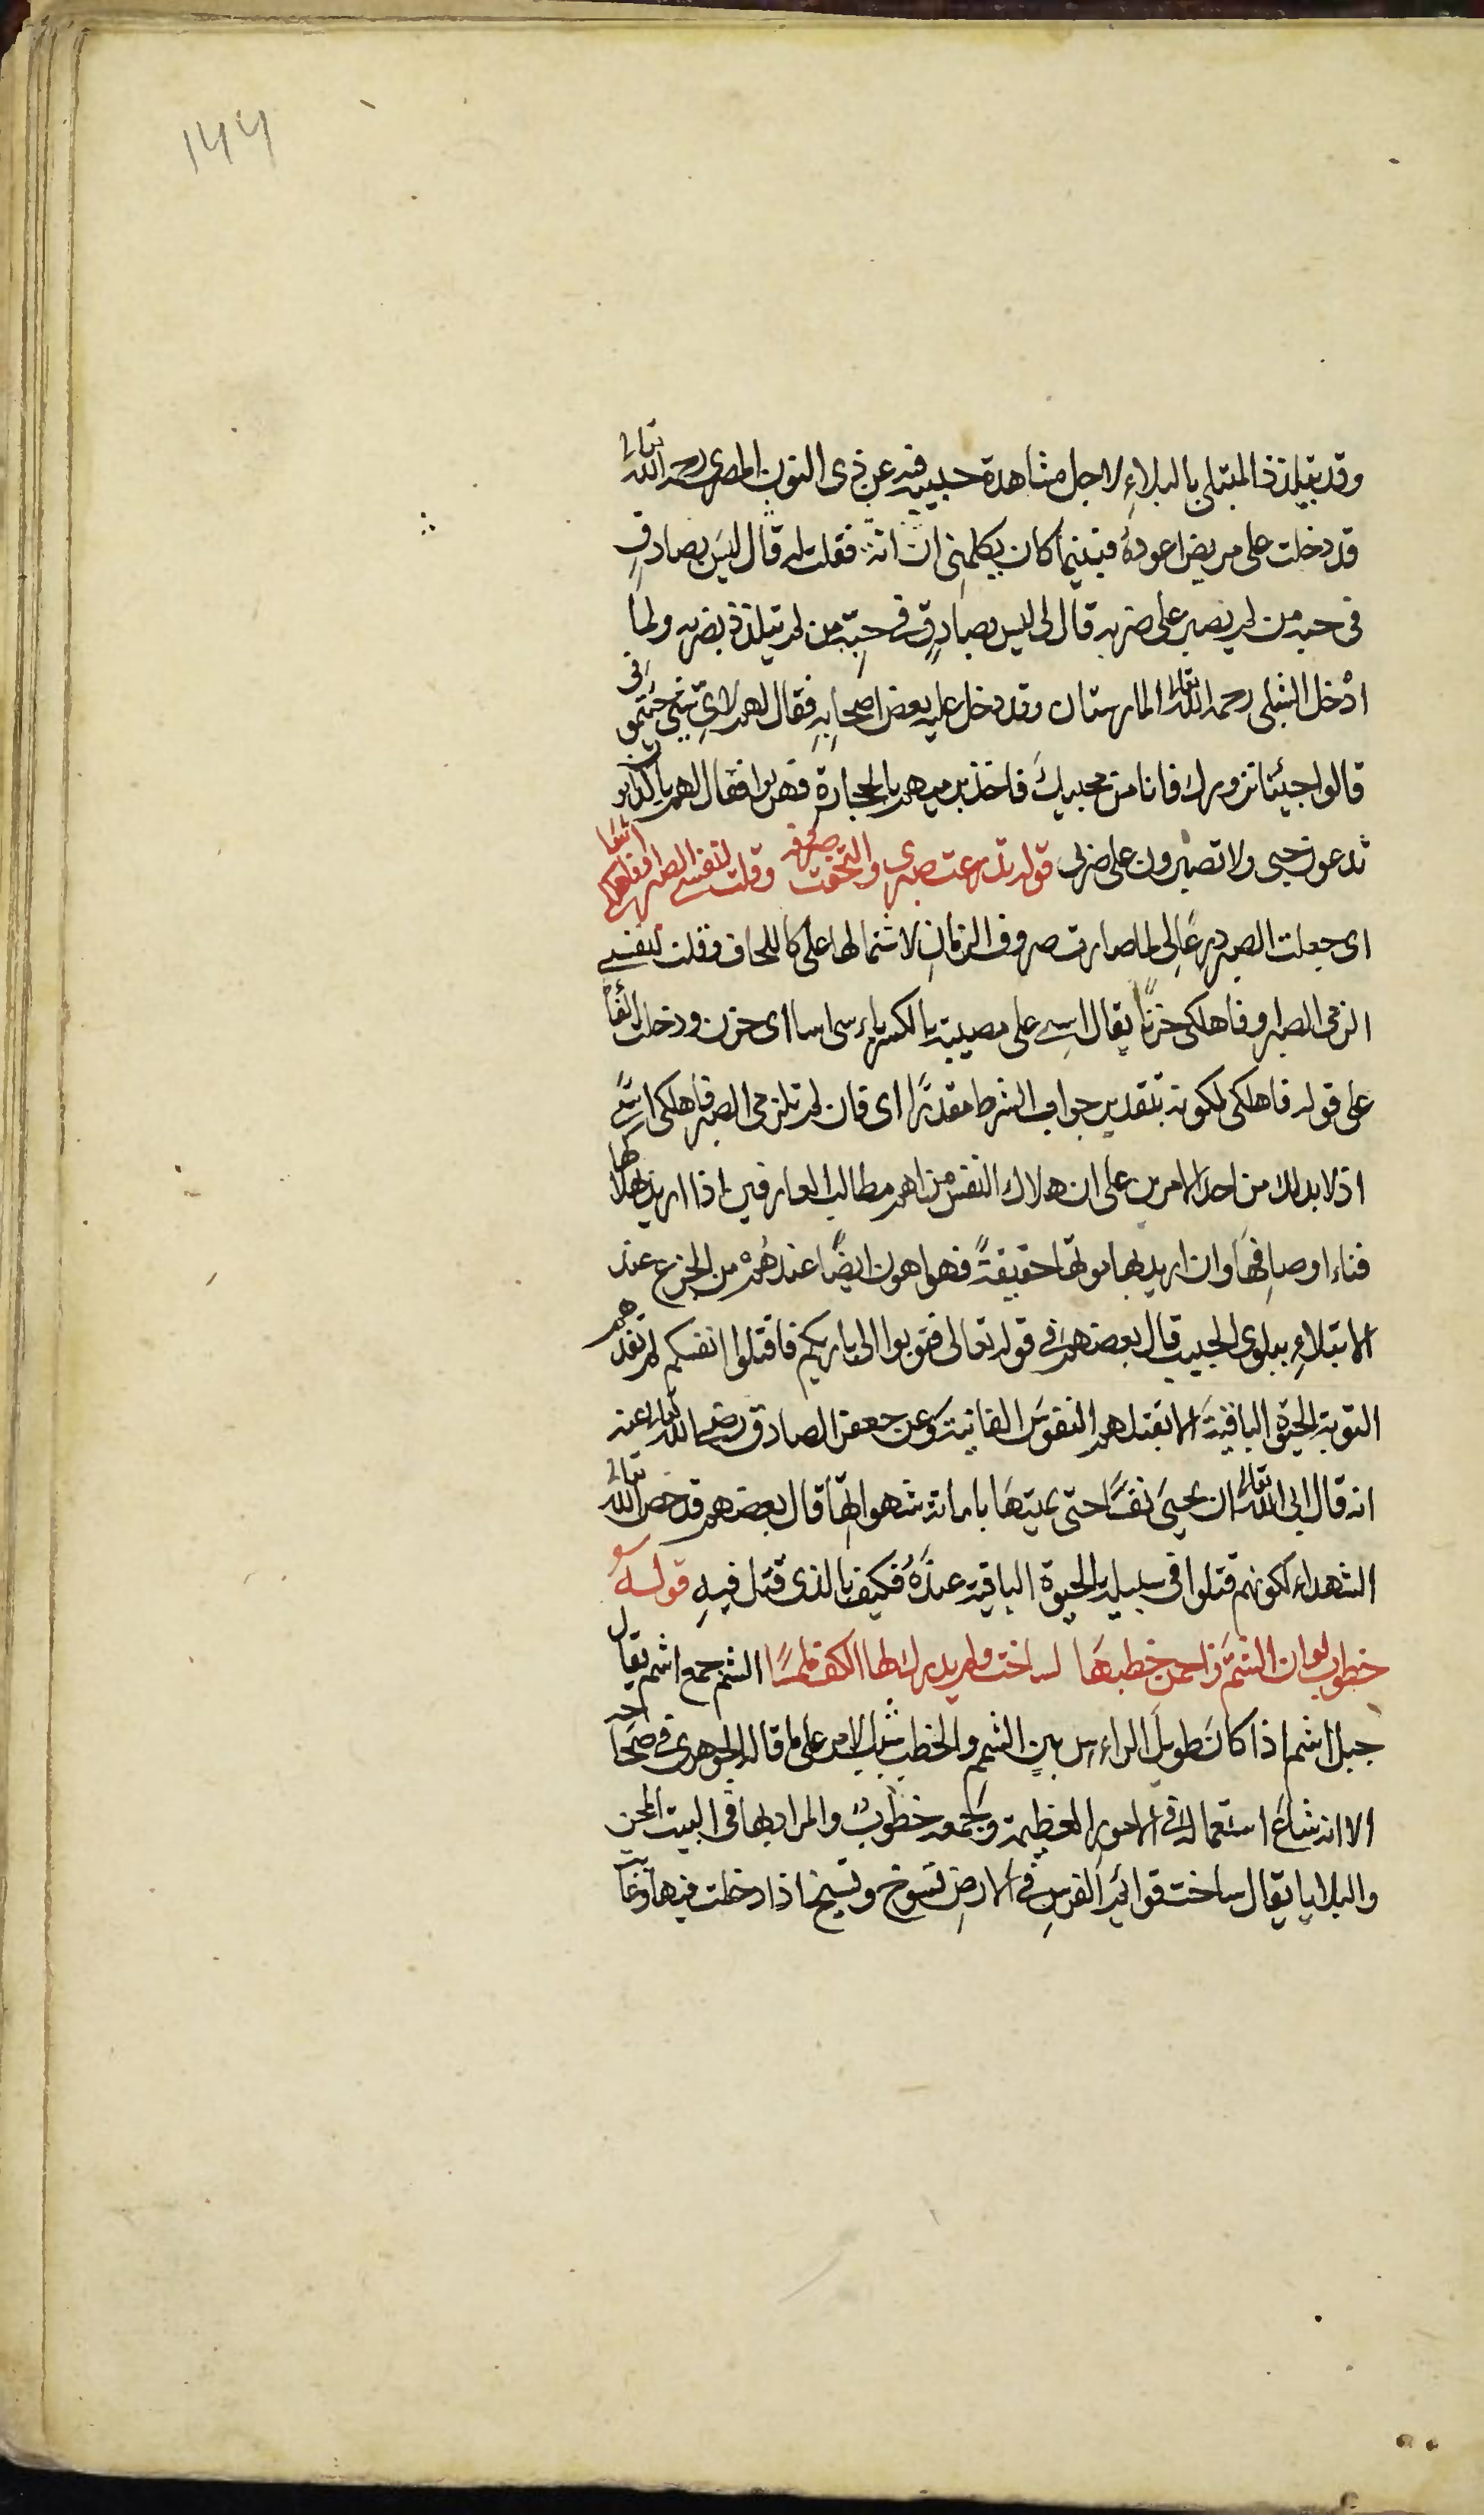 ۱۴۴
وقد يتلذذ المبتلى بالبلاءِ لاجل مشاهدة حبيبه فيه عن ذى النون المصرى رحمه الله تعالى
قد دخلت على مريض اعوده فبينما كان يكلمنى ان انّه فقلت له قال ليس بصادقٍ
فى حبه من لم يصبر على ضربه قال لى ليس بصادقٍ فى حبّه من لم يتلذذ بضربه ولما
ادْخل الشبلى رحمه الله تعالى المارستان وقد دخل عليه بعض اصحابِهِ فقال لهم لاىّ شئ جئتمونى
قالوا جيئنا نزورك فانا من محبيك فاخذ يرميهم بالحجارة فهربوا فقال لهم يا كذابون
تدعون حبى ولا تصبرون على ضربى قوله تدرعت صبرى والتحفت صروفه وقلت لنفسى الصبر او فاهلكى اسًا
اى جعلت الصبر درعًا لى لما صارت صروف الزمانِ لاشتمالها على كاللحاف وقلت لنفسى
الزمى الصبر او فاهلكى حزنًا يقال اسِى على مصيبته بالكسر ياءسى اسا اى حزن ودخلت الفا
على قوله فاهلكى لكونه بتقدير جواب الشرط مقدرًا اى فان لم تلزمى الصبر فاهلكى اسًى
اذ لا بد لك من احد الامرين على ان هلاك النفس من اهم مطالب العارفين اذا اريد بهلاكها
فناء اوصافِهَا وان اريد بها موتها حقيقةً فهو اهون ايضًا عندهُمْ من الجزع عند
الابتلاءِ ببلوى الحبيب قال بعضهم فى قوله تعالى فتوبوا الى باريكم فاقتلوا انفسكم لم تفدهم
التوبة الحيوة الباقيةَ الا بقتلهم النفوسَ الفانية وعن جعفر الصادق رضى الله تعالى عنه
انه قال ابى الله تعالى ان يحيىَ نفسًا حتى يميتهَا باماتة شهواتِهَا قال بعضهم قد خص الله تعالى
الشهداء لكونهم قتلوا فى سبيله بالحيوة الباقية عندَهُ فكيف بالذى قتل فيهِ قوله
خطوب لو ان الشمَّ زاحمن خطبهَا لساخت ولم يدرك لها الكف ملمسًا الشم جمع اشم يقال
جبل اشم اذا كانَ طويلَ الراءس بين الشمم والخطب سبب الامر على ما قاله الجوهرى فى صحاحه
الا انه شاعَ استعماله فى الامورِ العظيمة ويجمع خطوبٌ والمراد بها فى البيت المحن
والبلايا يقال ساخت قوائم الفرسِ فى الارضِ تسوخ وتسيخ اذا دخلت فيها وغابت